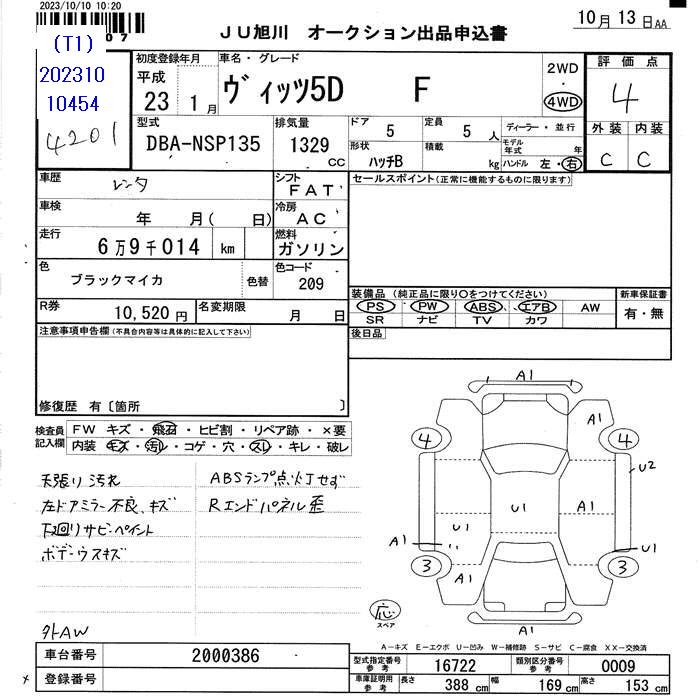 2023/10/10 10:20
07
JU旭川 オークション出品申込書
10月 13日AA
(T1)
202310
10454
4201
初度登録年月
平成
23 1月
車名・グレード
ヴィッツ5D F
2WD
・
4WD
評価点
4
外装 内装
C C
型式
DBA-NSP135
排気量
1329
CC
ドア
5
定員
5 人
ディーラー・並行
形状
ハッチB
積載
kg
モデル年式 年
ハンドル 左・右
車歴
レンタ
シフト
FAT
セールスポイント(正常に機能するものに限ります)
車検
年 月( 日)
冷房
AC
走行
6万9千014 km
燃料
ガソリン
色
ブラックマイカ
色替
色コード
209
R券
10,520円
名変期限
月 日
装備品(純正品に限り○をつけてください)
PS PW ABS エアB AW
SR ナビ TV カワ
新車保証書
有・無
注意事項申告欄(不具合内容等は具体的に記入して下さい)
後日品
修復歴 有〔箇所 〕
検査員記入欄
FW キズ・飛石・ヒビ割・リペア跡・×要
内装 キズ・汚レ・コゲ・穴・スレ・キレ・破レ
天張り汚れ
左ドアミラー不良、キズ
下回りサビ・ペイント
ボデーウスキズ
ABSランプ点灯せず
Rエンドパネル歪
外AW
A1
A1
4
4
U2
U1
A1
U1
A1
U1
3
3
A1
A1
応
スペア
A-キズ E-エクボ U-凹み W-補修跡 S-サビ C-腐食 XX-交換済
車台番号
2000386
登録番号
型式指定番号
参考
16722
類別区分番号
参考
0009
車庫証明用
参考
長さ 388 cm
幅 169 cm
高さ 153 cm